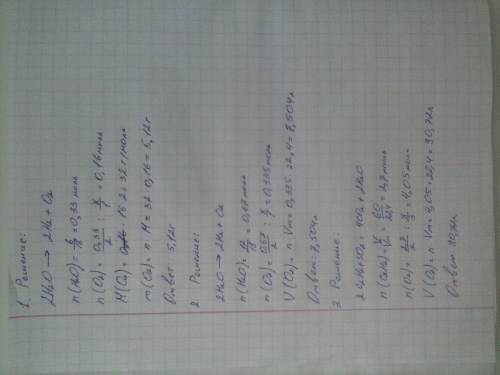 1. Решение:
2H₂O → 2H₂ + O₂
n(H₂O) = 6/18 = 0,33 моль
n(O₂) = 0,33/2 : 2/1 = 0,16 моль
M(O₂) = 16·2 = 32 г/моль
m(O₂) = n·M = 32·0,16 = 5,12 г
Ответ: 5,12 г
2. Решение:
2H₂O → 2H₂ + O₂
n(H₂O) = 12/18 = 0,67 моль
n(O₂) = 0,67/2 : 2/1 = 0,335 моль
V(O₂) = n·Vm = 0,335·22,4 = 7,504 л
Ответ: 7,504 л
3. Решение:
2C₂H₂ + 5O₂ = 4CO₂ + 2H₂O
n(C₂H₂) = V/Vm = 60/22,4 = 2,7 моль
V(O₂) = n·Vm = 4,05·22,4 = 90,72 л
Ответ: 90,72 л